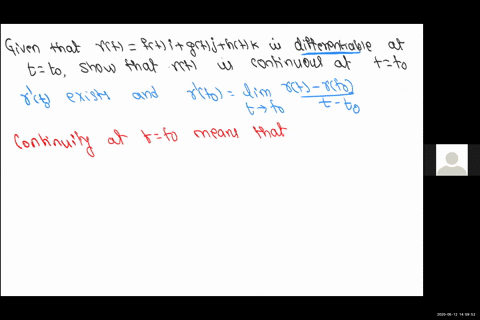 Given that r(t) = f(t) i + g(t) j + h(t) k is differentiable at
t = t0, show that r(t) is continuous at t = t0
r'(t0) exists and r'(t0) = lim t→t0 r(t) - r(t0) / t - t0
Continuity at t = t0 means that
2020-05-12 14:09:53